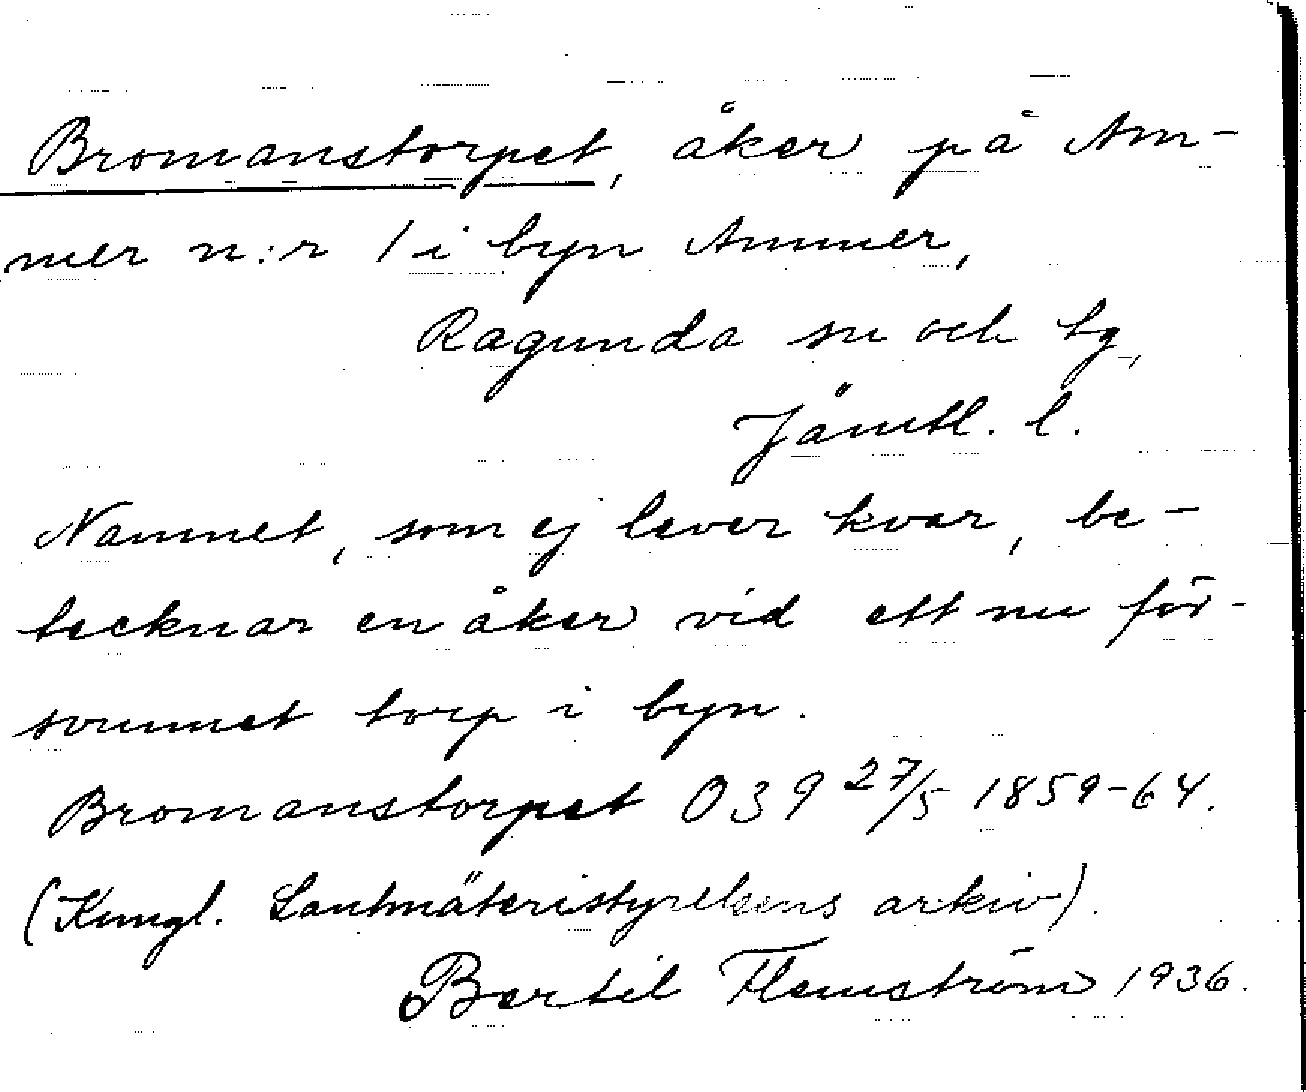 Bromanstorpet, åker på Am-
mer n:r 1 i byn Ammer,
Ragunda sn och tg,
Jämtl. l.
Namnet, som ej lever kvar, be-
tecknar en åker vid ett nu för-
svunnet torp i byn.
Bromanstorpet O39 27/5 1859-64.
(Kungl. Lantmäteristyrelsens arkiv).
Bertil Flemström 1936.